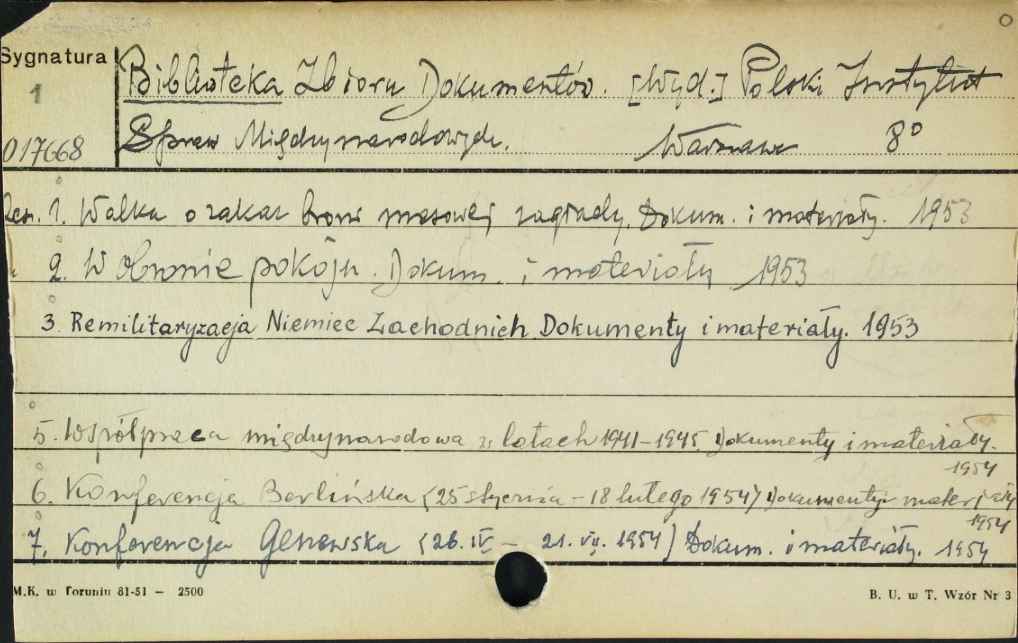 Sygnatura
1
017668
Biblioteka Zbioru Dokumentów. [Wyd.] Polski Instytut
Spraw Międzynarodowych. Warszawa 8°
1. Walka o zakaz broni masowej zagłady. Dokum. i materiały. 1953
2. W obronie pokoju. Dokum. i materiały 1953
3. Remilitaryzacja Niemiec Zachodnich. Dokumenty i materiały. 1953
5. Współpraca międzynarodowa w latach 1941-1945. Dokumenty i materiały.
1954
6. Konferencja Berlińska (25 stycznia - 18 lutego 1954) Dokumenty i materiały
1954
7. Konferencja Genewska (26. IV - 21. VII. 1954) Dokum. i materiały. 1954
M.K. w Toruniu 81-51 — 2500
B. U. w T. Wzór Nr 3